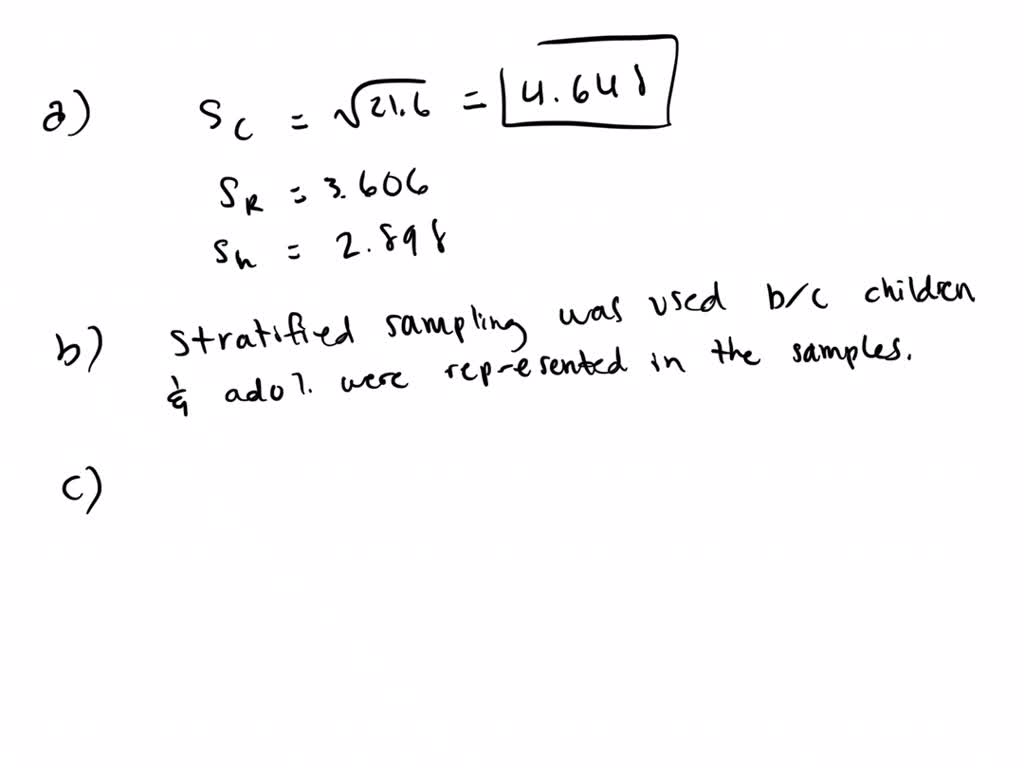 a) S_C = √21.6 = 4.648
S_R = 3.606
S_h = 2.898
b) stratified sampling was used b/c children
& adol. were represented in the samples.
c)